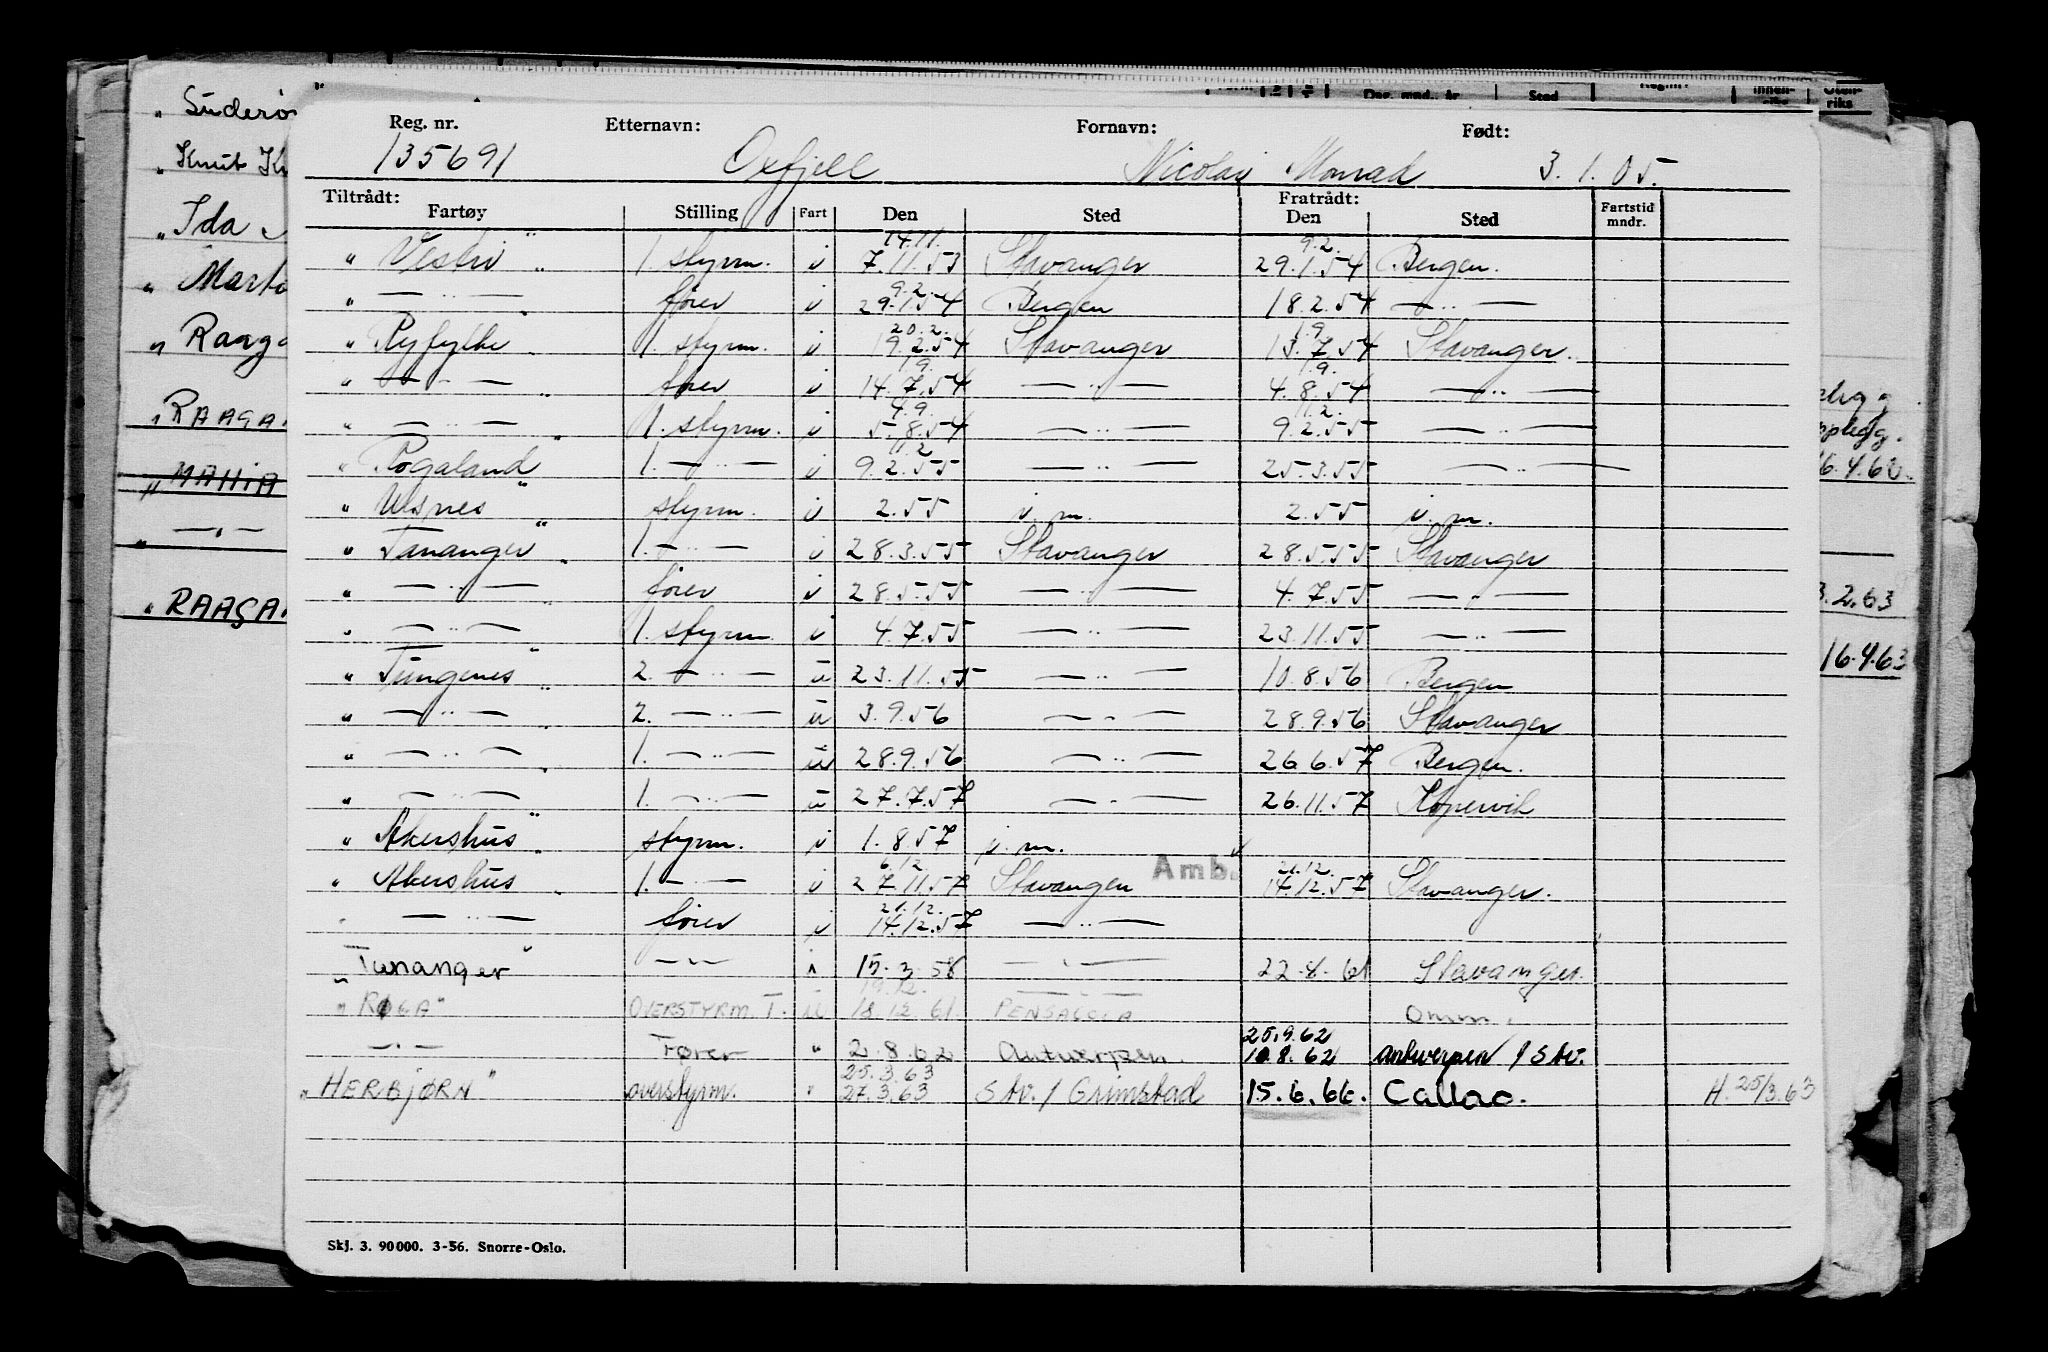 „ Suderø
„ Knut K
„ Ida
„ Marta
„ Raaga
„ RAAGA
„ MAHIA
„ — „ —
„ RAAGA
Dag, mnd., år Sted Innen-riks Uten-riks
16.4.62
3.2.63
16.4.63
Reg. nr. Etternavn: Fornavn: Født:
135691 Oxfjell Nicolai Monrad 3.1.05.
Tiltrådt: Fratrådt:
Fartøy Stilling Fart Den Sted Den Sted Fartstid mndr.
14.11. 9.2.
" Vestri " 1. styrm. i 7.11.53 Stavanger 29.1.54 Bergen.
9.2.
" — " — fører i 29.1.54 Bergen 18.2.54 — " —
20.2. 1.9.
" Ryfylke " 1. styrm. i 19.2.54 Stavanger 13.7.54 Stavanger.
1.9. 1.9.
" — " — " fører i 14.7.54 — " — 4.8.54 — " —
4.9. 11.2.
" — " — " 1. styrm. i 5.8.54 — " — 9.2.55 — " —
11.2
" Rogaland " 1. — " — i 9.2.55 — " — 25.3.55 — " —
" Visnes " styrm. i 2.55 i.m. 2.55 i.m.
" Tananger " 1. — " — i 28.3.55 Stavanger 28.5.55 Stavanger
" — " — fører i 28.5.55 — " — 4.7.55 — " —
" — " — 1. styrm. i 4.7.55 — " — 23.11.55 — " —
" Tungenes " 2. — " — u 23.11.55 — " — 10.8.56 Bergen
" — " — 2. — " — u 3.9.56 — " — 28.9.56 Stavanger
" — " — " 1. — " — u 28.9.56 — " — 26.6.57 Bergen.
" — " — 1. — " — u 27.7.57 — " — 26.11.57 Kopervik
" Akershus " styrm. i 1.8.57 i.m.
6.12 Amb. 21.12.
" Akershus " 1. — " — i 27.11.57 Stavanger 14.12.57 Stavanger.
21.12.
" — " — fører i 14.12.57 — " —
" Tananger " — " — i 15.3.58 — " — 22.8.61 Stavanger.
19.12.
" RØGA " OVERSTYRM. T. u 18.12.61. PENSACOLA Omm.
25.9.62
— " — Fører " 2.8.62 Antwerpen. 10.8.62 antwerpen / Stv.
25.3.63
" HERBJØRN " overstyrm. " 27.3.63 Stv. / Grimstad 15.6.66. Callao. H. 25/3.63
Skj. 3. 90000. 3-56. Snorre-Oslo.